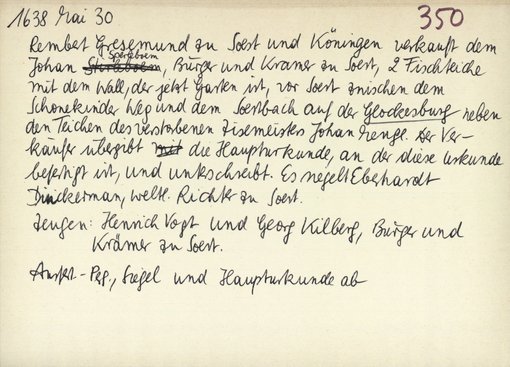 1638 Mai 30 350
Rembet Gresemund zu Soest und Köningen verkauft dem
Sperboem
Johan, Bürger und Kramer zu Soest, 2 Fischteiche
mit dem Wall, der jetzt Garten ist, vor Soest zwischen dem
Schonekinder Weg und dem Soestbach auf der Glockesburg neben
den Teichen des verstorbenen Zisemeisters Johan Menge. Der Ver-
käufer übergibt mit die Haupturkunde, an der diese Urkunde
befestigt ist, und unterschreibt. Es siegelt Eberhardt
Dinckerman, weltl. Richter zu Soest.
Zeugen: Henrich Vogt und Georg Kilberg, Bürger und
Krämer zu Soest.
Ausfert.-Perg., Siegel und Haupturkunde ab